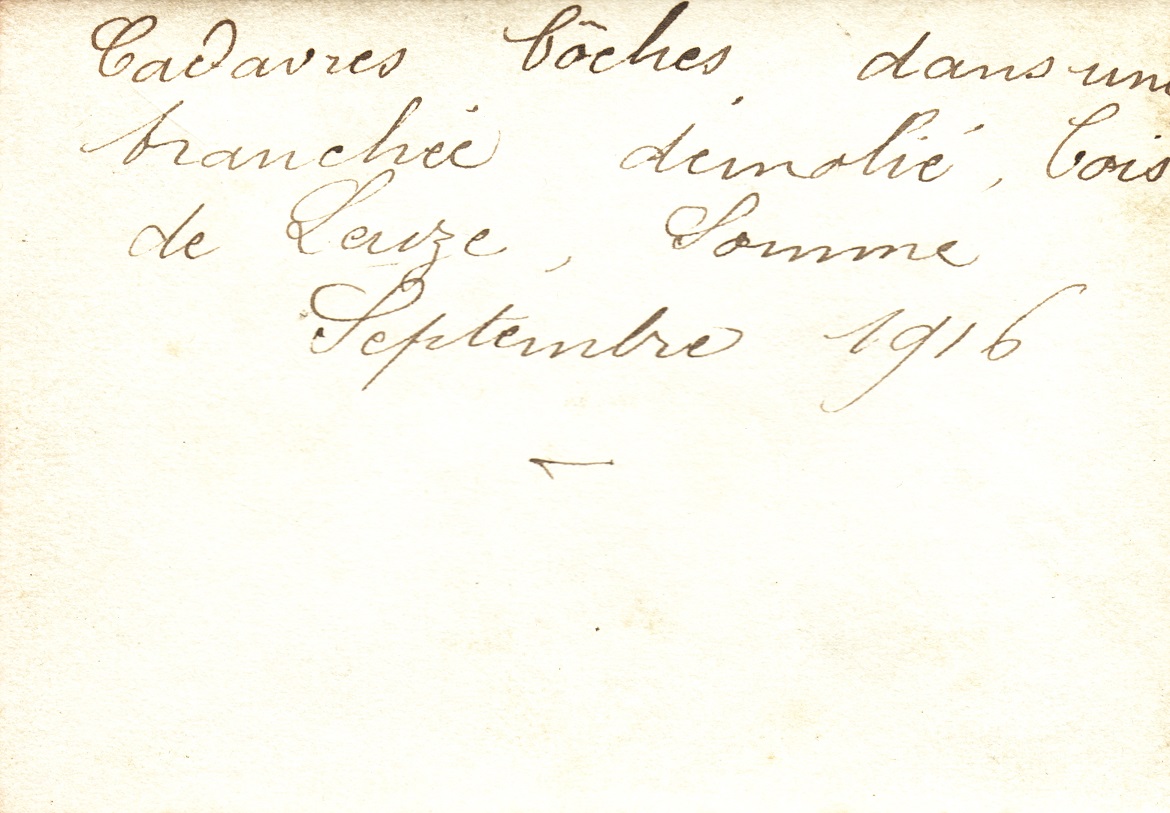 Cadavres bôches dans une
tranchée démolié, bois
de Leuze, Somme
Septembre 1916